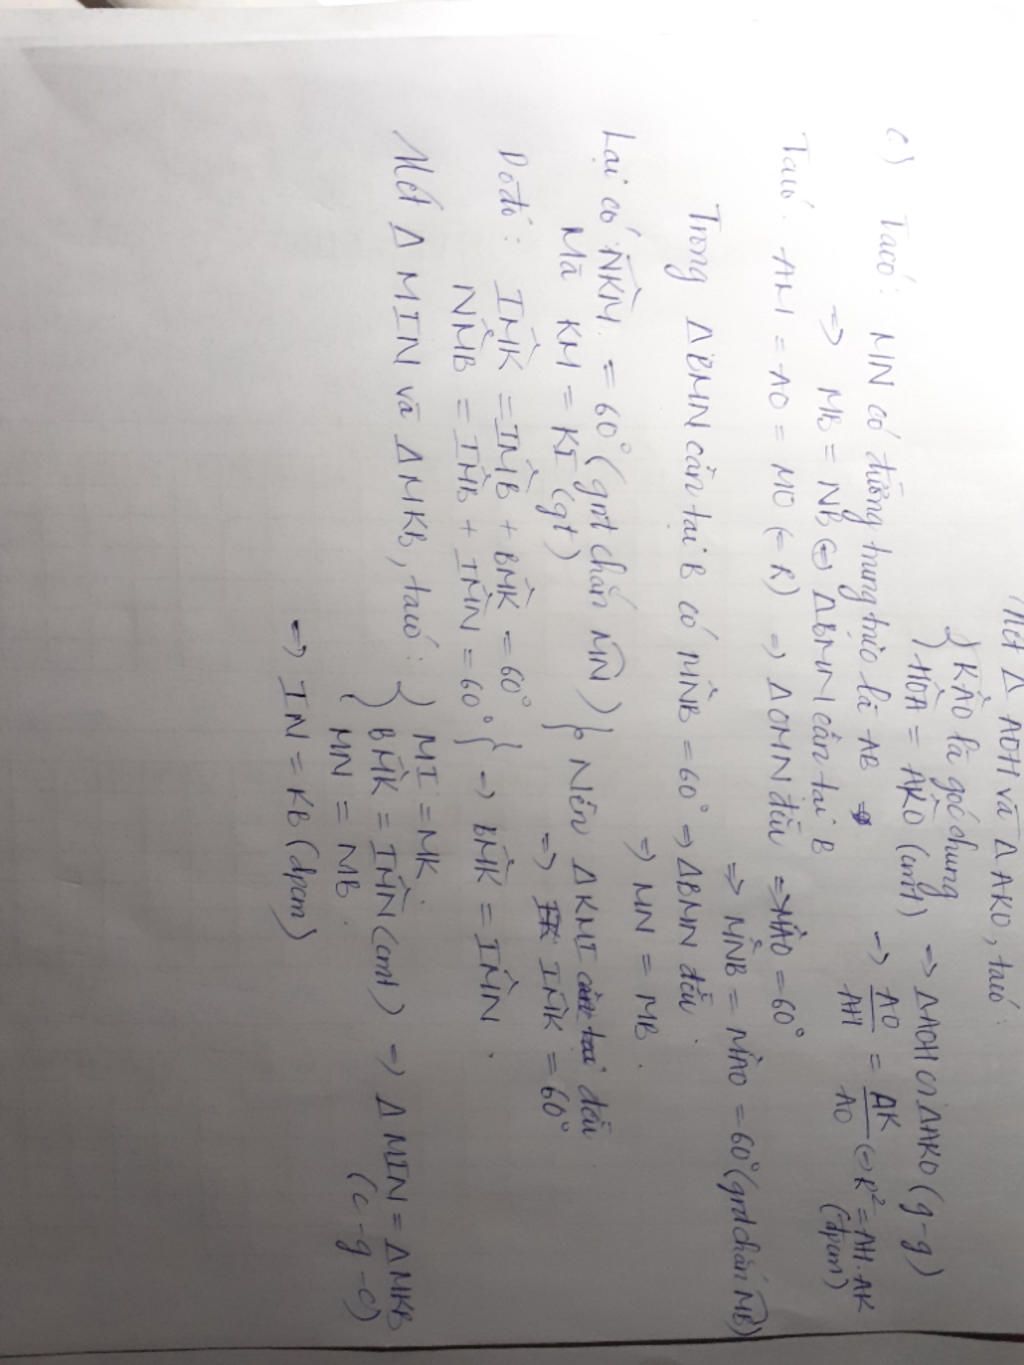 Xét Δ AOH và Δ AKO, ta có:
{ KÂO là góc chung
HÔA = AK̂O (cmt) => ΔAOH ∽ ΔAKO (g-g)
=> AO/AH = AK/AO <=> R² = AH.AK (đpcm)
c) Ta có: MN có đường trung trực là AB
=> MB = NB <=> ΔBMN cân tại B
Ta có: AM = AO = MO (= R) => ΔOMN đều => MÂO = 60°
=> MN̂B = MÂO = 60° (gnt chắn MB)
Trong ΔBMN cân tại B có MN̂B = 60° => ΔBMN đều.
=> MN = MB.
Lại có NK̂M = 60° (gnt chắn MN)
Mà KM = KI (gt) } Nên ΔKMI đều
=> IM̂K = 60°
Do đó: IM̂K = IM̂B + BM̂K = 60°
NM̂B = IM̂B + IM̂N = 60° } => BM̂K = IM̂N.
Xét Δ MIN và Δ MKB, ta có: { MI = MK
BM̂K = IM̂N (cmt) => Δ MIN = Δ MKB
MN = MB. (c-g-c)
=> IN = KB (đpcm)